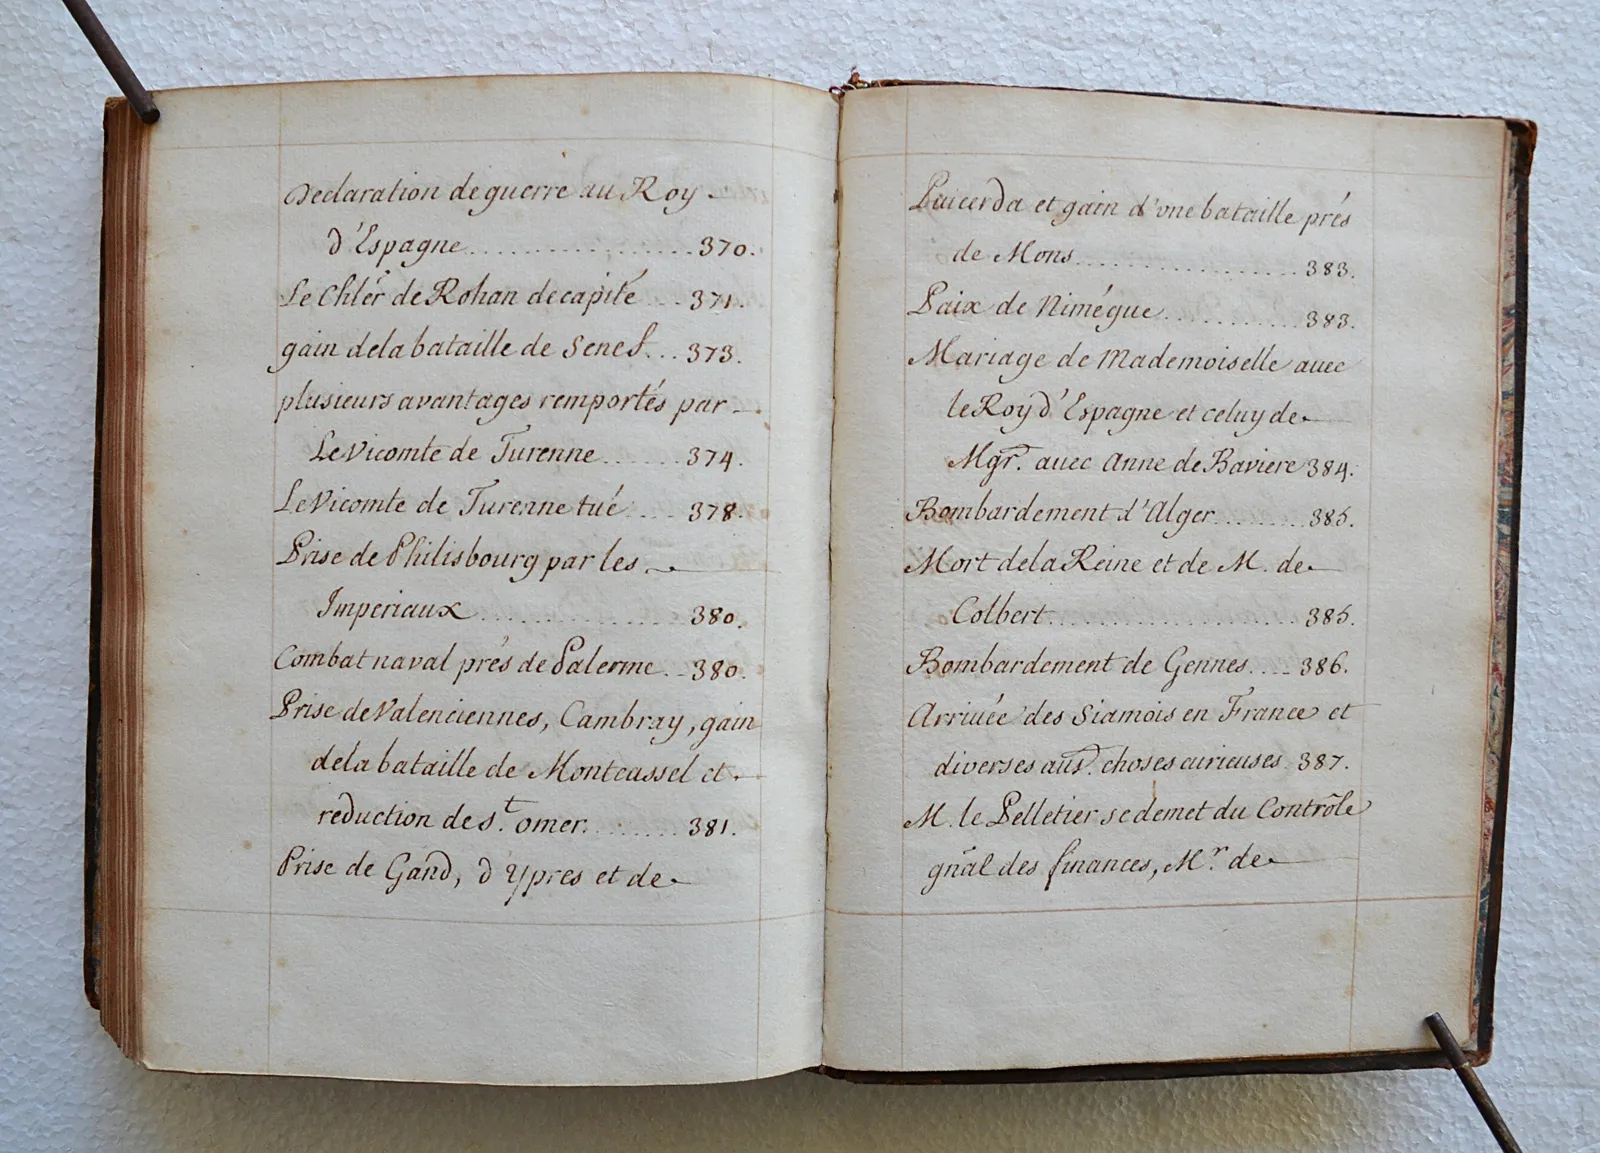 Declaration de guerre au Roy
d'Espagne.....................370.
Le Chlër de Rohan decapité ... 371.
gain dela bataille de Senef... 373.
plusieurs avantages remportés par
Le Vicomte de Turenne.......374.
Le Vicomte de Turenne tué.... 378.
Prise de Philisbourg par les
Imperiaux....................380.
Combat naval prés de Palerme...380.
Prise de Valenciennes, Cambray, gain
dela bataille de Montcassel et
reduction de St. omer.........381.
Prise de Gand, d'Ypres et de
Puicerda et gain d'vne bataille prés
de Mons......................383.
Paix de Nimégue..............383.
Mariage de Mademoiselle avec
le Roy d'Espagne et celuy de
Mgr. avec Anne de Baviere 384.
Bombardement d'Alger.........385.
Mort dela Reine et de M. de
Colbert......................385.
Bombardement de Gennes.....386.
Arriuée des Siamois en France et
diverses aus. choses curieuses 387.
M. le Pelletier se demet du Contrôle
gnäl des finances, Mr. de